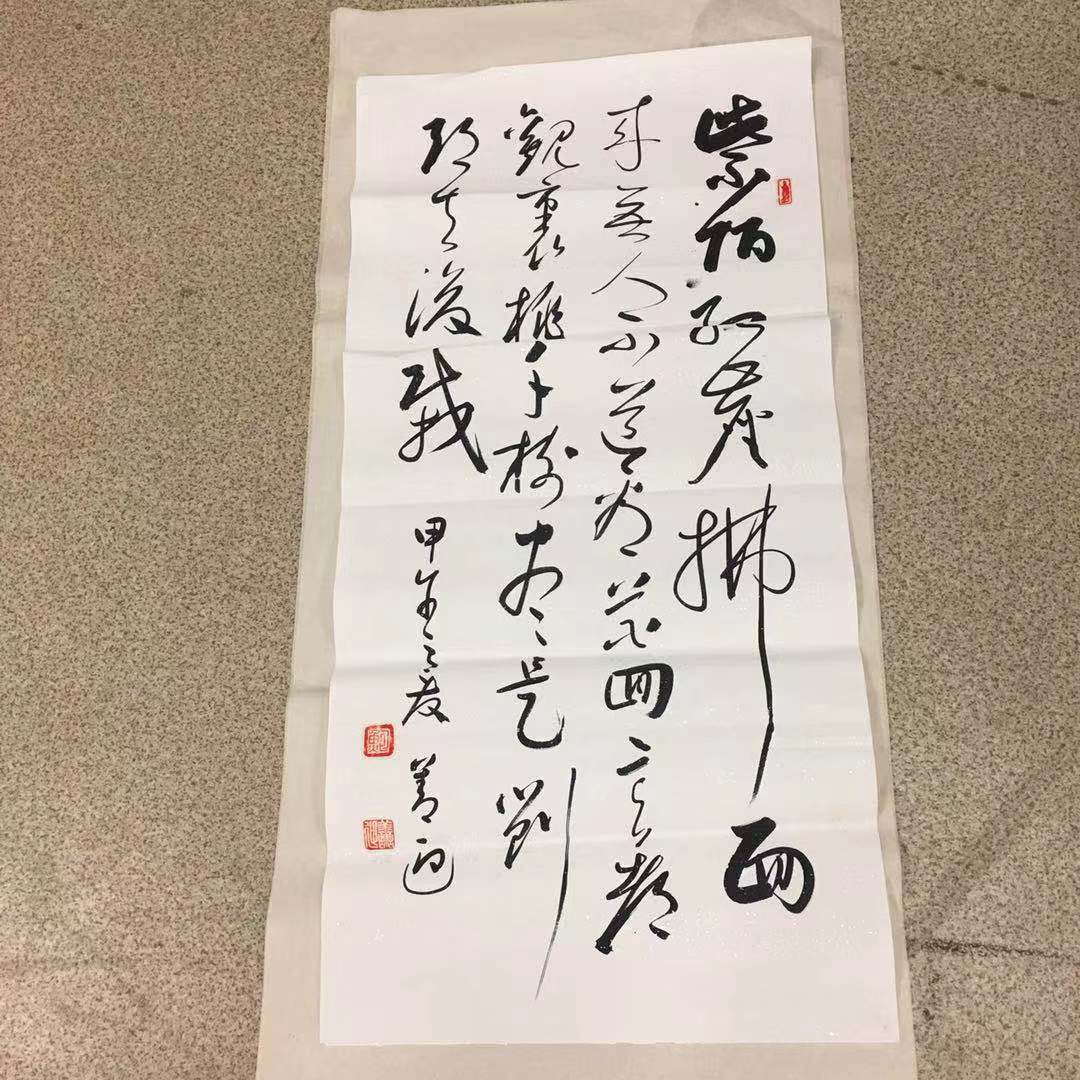 紫陌紅塵拂面
來無人不道看花回玄都
觀裏桃千樹盡是劉
郎去後栽 甲午之夏 善